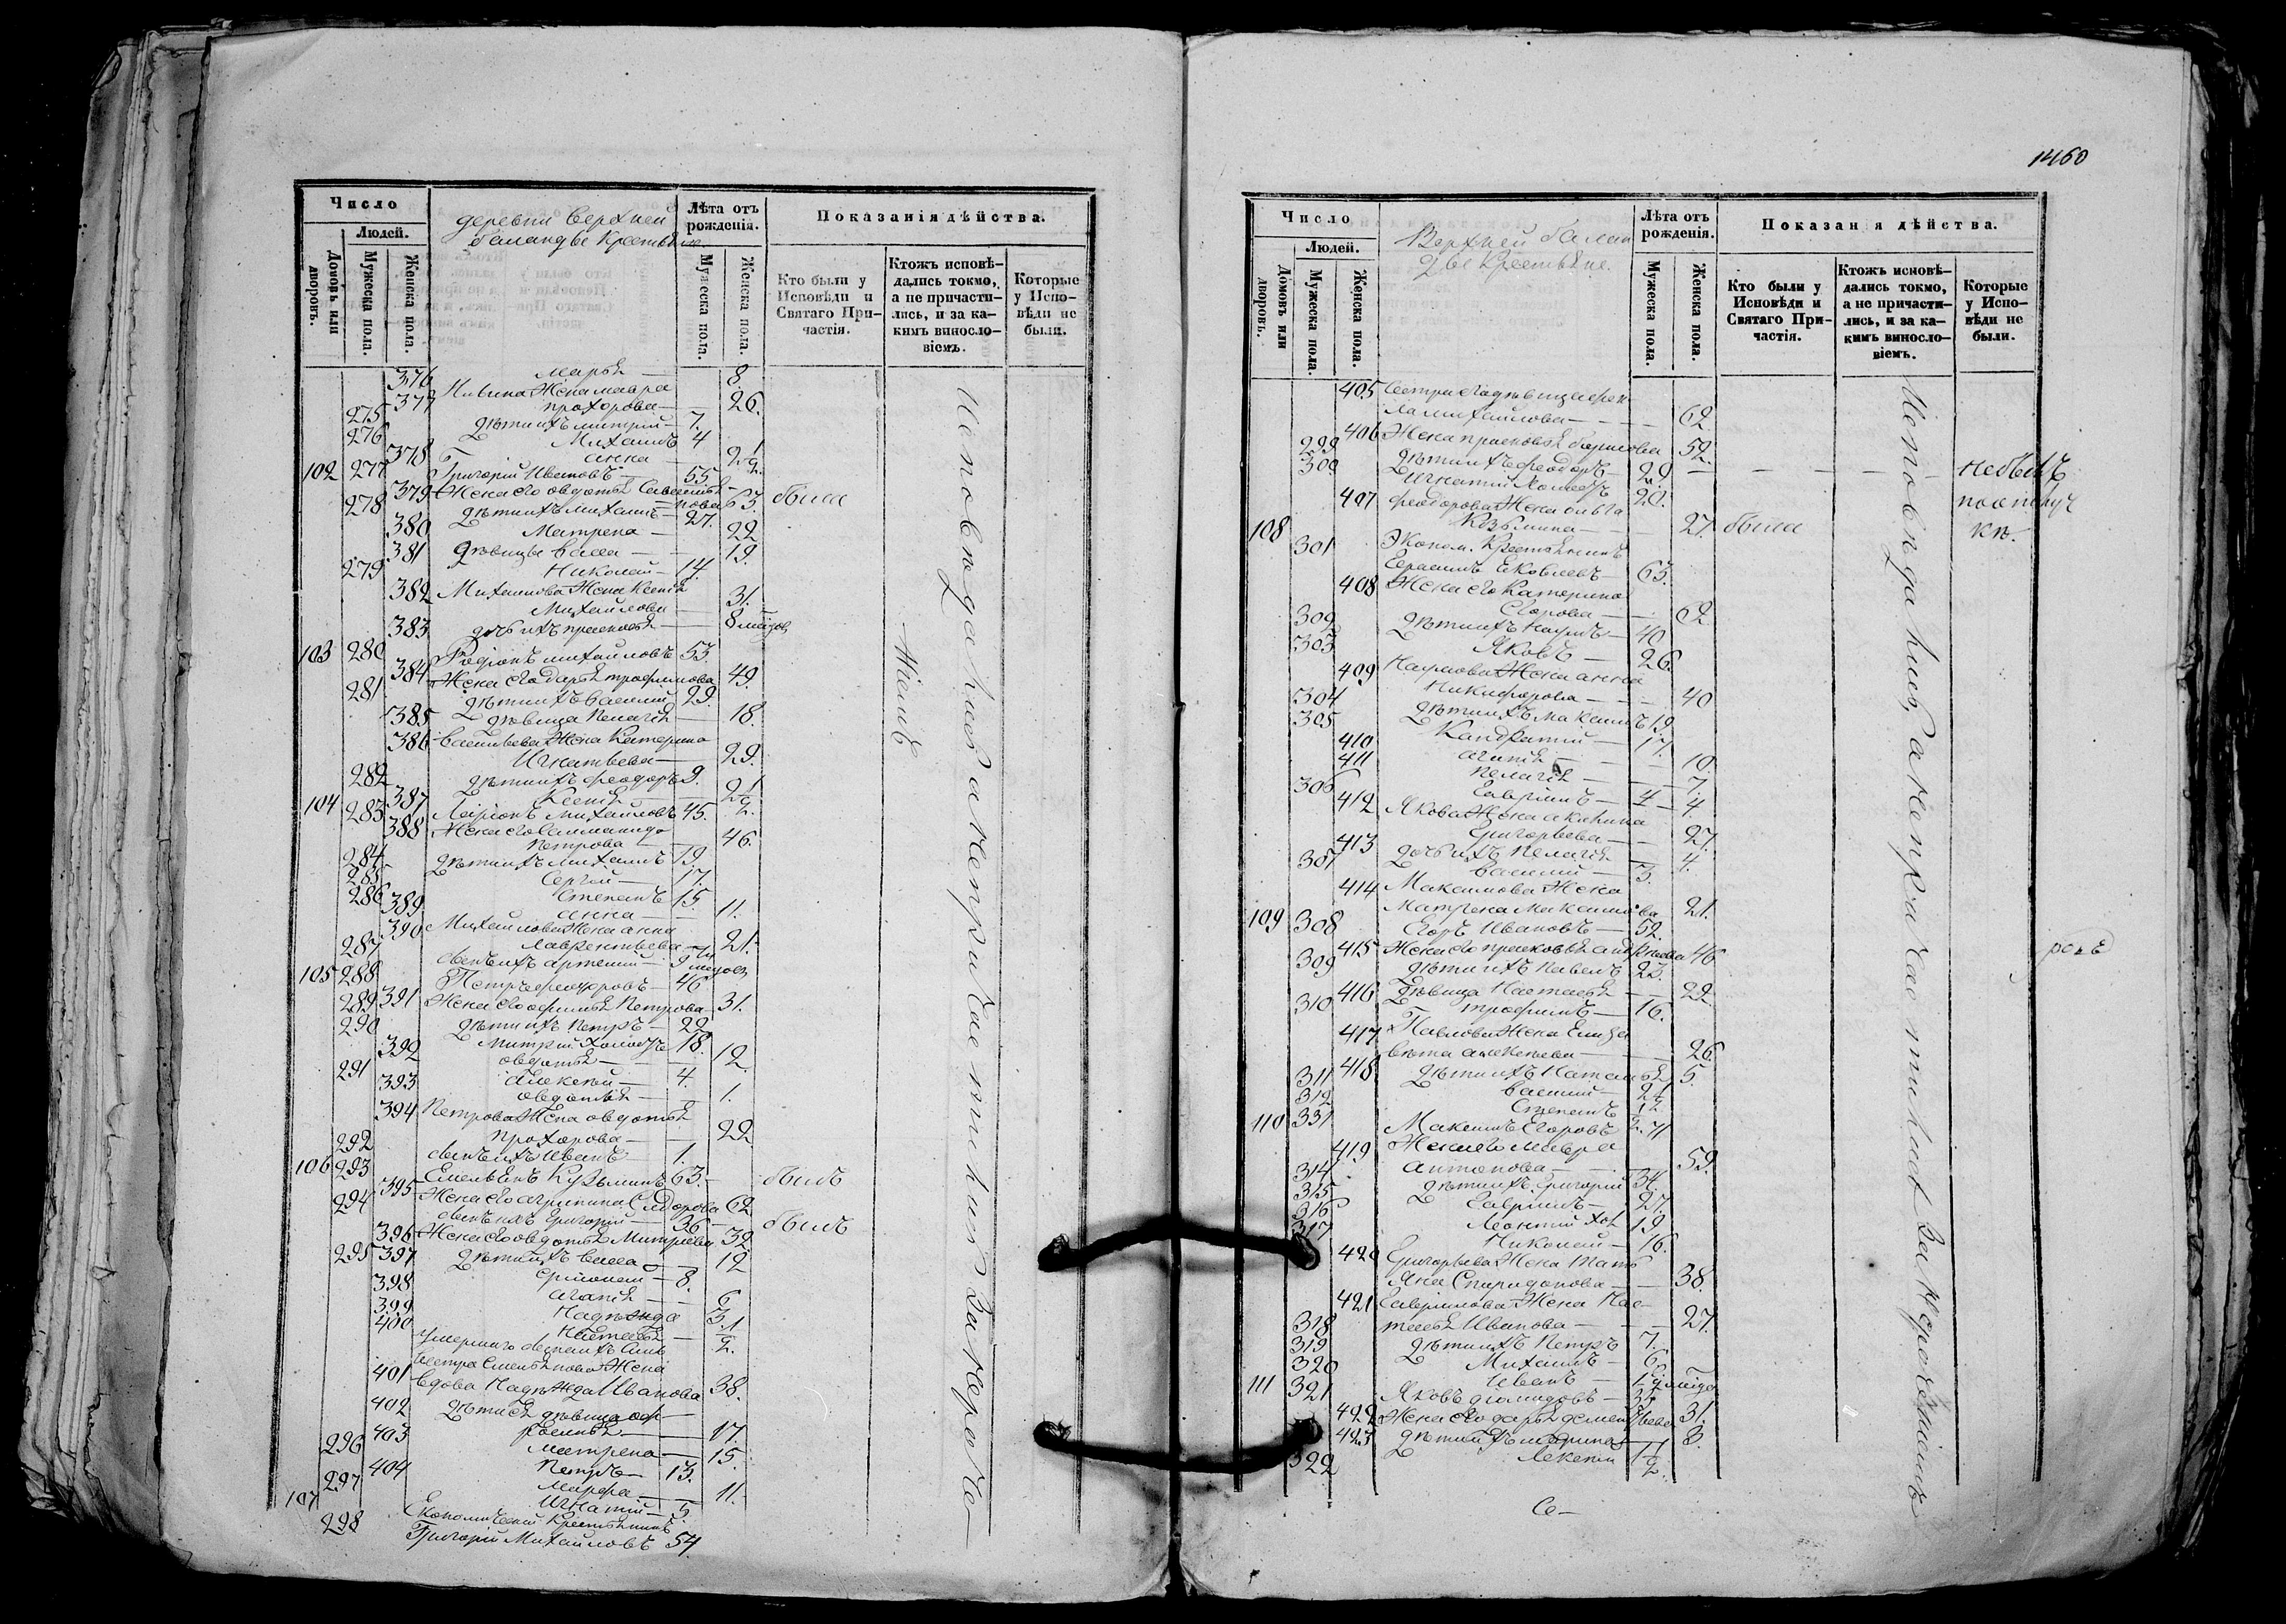 Число
деревни Верхней
Баландве Крестьяне
Лѣта отъ рожденія.
Показанія дѣйства.
Людей.
Домовъ или дворовъ.
Мужеска пола.
Женска пола.
Мужеска пола.
Женска пола.
Кто были у Исповѣди и Святаго Причастія.
Ктожъ исповѣдались токмо, а не причастились, и за какимъ винословіемъ.
Которые у Исповѣди не были.
376 Марья — 8.
377 Жена мавра
прохорова — 26.
275 дѣти ихъ митрій — 7.
276 Михаилъ 4
378 анна — 2 1/2.
102 277 Григорій Ивановъ — 55
379 Жена его овдотья Савелья-
нова 63. была
278 дѣти ихъ Михаилъ — 27.
380 Матрена — 22
381 дѣвицы васса — 19.
279 Николай — 14.
382 Михаилова Жена Ксенья
Михайлова — 31.
383 дочь ихъ прасковья — 8
103 280 Родіонъ михайловъ 53.
384 Жена его дарья трофимова 49.
281 дѣти ихъ василий 29.
385 дѣвица Пелагія — 18.
386 васильева Жена Катерина
Игнатьева — 29.
282 дѣти ихъ феодоръ 9.
387 Ксенья — 2 1/2.
104 283 Ларіонъ Михайловъ 45.
388 Жена его
петрова — 46.
284 дѣти ихъ Михаилъ 19.
285 Сергей — 17.
286 Степанъ 15.
389 анна — 11.
390 Михайлова Жена анна
Лаврентьева — 21.
287 сынъ ихъ артемий — 9
105 288 Петръ федоровъ — 46
391 Жена его офимья Петрова — 31.
289 дѣти ихъ Петръ — 22
290 Митрий Холостъ 18.
392 овдотья — 12.
291 Алексей — 4.
393 овдотья — 1.
394 Петрова Жена овдотья
Прохорова — 22
292 сынъ ихъ Иванъ — 1.
106 293 Емельянъ Кузьминъ 63. — былъ
395 Жена его агрипина Сидорова 62
294 сынъ ихъ Григорий — 36 — былъ
396 Жена его овдотья Митриева 32
295 397 дѣти ихъ васса — 12
Ермолай — 8.
398 агапья — 6
399 Надѣжда — 3.
400 Настасья — 1/2.
умершаго
Емельянова Жена
401 вдова Надѣжда Иванова 38.
402 дѣти ея дѣвица оф-
росинья — 17.
403 матрена — 15.
296 Петръ — 13.
404 Марфа — 11.
297 Игнатій — 5.
107 Економический Крестьянинъ
298 Григорій Михайловъ 54
Исповѣдались а не причастились За нераче-
Ніемъ
1460
Число
Верхней балан
две Крестьяне.
Лѣта отъ рожденія.
Показанія дѣйства.
Людей.
Домовъ или дворовъ.
Мужеска пола.
Женска пола.
Мужеска пола.
Женска пола.
Кто были у Исповѣди и Святаго Причастія.
Ктожъ исповѣдались токмо, а не причастились, и за какимъ винословіемъ.
Которые у Исповѣди не были.
405 Сестра его дѣвица
михайлова — 62.
406 Жена прасковья борисова 52.
299 дѣти ихъ феодоръ — 29 — небылъ
300 Игнатий Холостъ 20.
407 феодорова Жена ольга
Козьмина — 27. была
108 Эконом. Крестьянинъ
301 Герасимъ Яковлевъ 63.
408 Жена его Катерина
Егорова — 62.
302 дѣти ихъ наумъ — 40
303 Яковъ — 26.
409 Наумова Жена анна
Никифорова — 40
304 дѣти ихъ максимъ 19.
305 Кандратий — 17.
410 агапья — 10.
411 Пелагія — 7.
306 Гаврилъ — 4 — 4.
412 Якова Жена акилина
Григорьева — 27.
413 дочь ихъ Пелагія — 4.
307 василий — 3.
414 Максимова Жена
Матрена Максимова 21.
109 308 Егоръ Ивановъ — 52.
415 Жена его прасковья 46
309 дѣти ихъ Павелъ 23.
416 дѣвица Настасья — 22.
310 трофимъ — 16.
417 Павлова Жена Елиза
вѣта алексеева — 26.
418 дѣти ихъ Наталья 5.
311 василий — 2 1/2
312 Степанъ 1/2.
110 331 Максимъ Егоровъ 71
419 Жена его мавра
антонова — 59.
314 дѣти ихъ Григорий 34.
315 Гаврилъ — 27.
316 Леонтий Хол 19.
317 Николай — 16.
420 Григорьева Жена Тать
Яна Спиридонова — 38.
421 Гаврилова Жена Нас-
тасья Иванова — 27.
318 дѣти ихъ Петръ 7.
319 Михаилъ — 6.
320 Иванъ — 1
111 321 Яковъ
422 Жена его дарья дементьева 31.
423 дѣти ихъ марина — 8.
322 Алексей 1/2.
Исповѣдались, а непричастились За Нерачѣніемъ
Се-